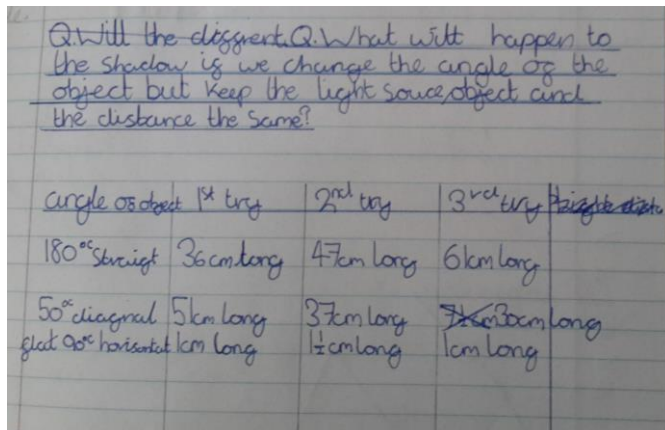 Q. Will the diffrent. Q. What will happen to
the shadow if we change the angle of the
object but keep the light souce, object and
the distance the same?
angle of object 1st try 2nd try 3rd try
180°c straigt 36cm long 47cm long 61cm long
50°c diagnal 51cm long 37cm long 30cm long
flat 90°c horisontal 1cm long 1½cm long 1cm long